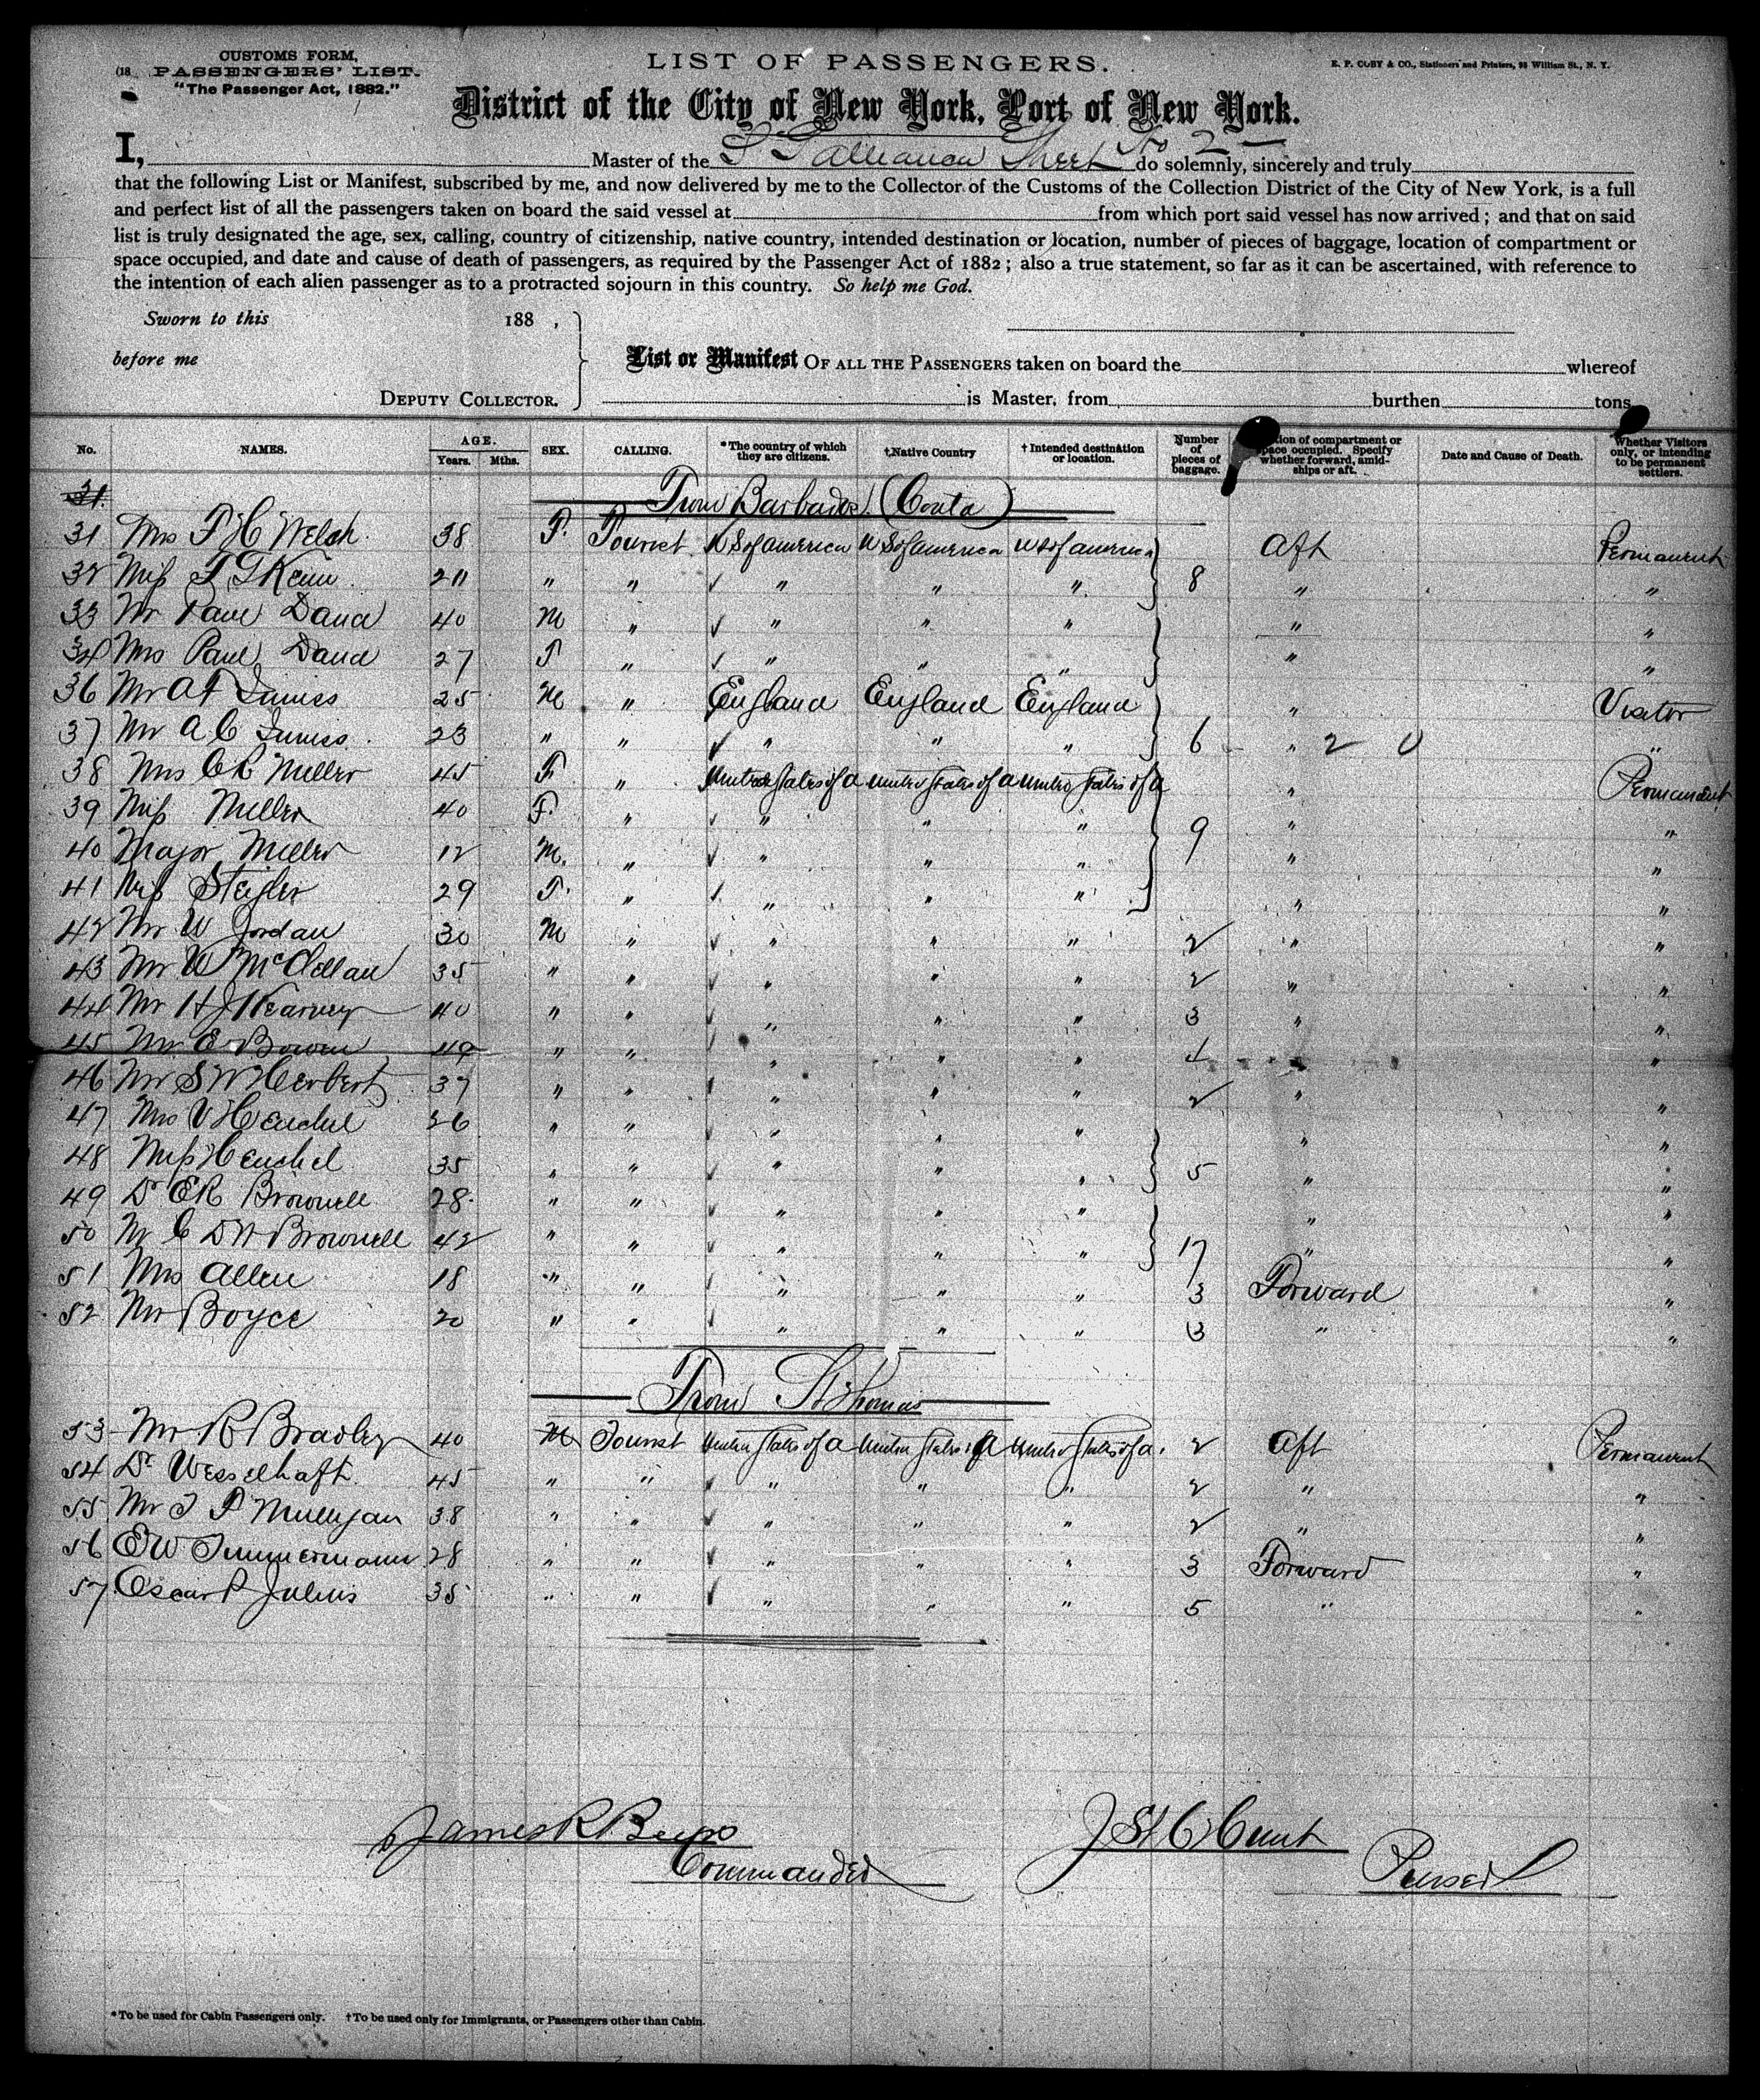 CUSTOMS FORM,
PASSENGERS' LIST.
"The Passenger Act, 1882."
LIST OF PASSENGERS.
E. P. COBY & CO., Stationers and Printers, 98 William St., N. Y.
District of the City of New York, Port of New York.
I, Master of the S S Allianca Sheet No 2 do solemnly, sincerely and truly
that the following List or Manifest, subscribed by me, and now delivered by me to the Collector of the Customs of the Collection District of the City of New York, is a full
and perfect list of all the passengers taken on board the said vessel at from which port said vessel has now arrived; and that on said
list is truly designated the age, sex, calling, country of citizenship, native country, intended destination or location, number of pieces of baggage, location of compartment or
space occupied, and date and cause of death of passengers, as required by the Passenger Act of 1882; also a true statement, so far as it can be ascertained, with reference to
the intention of each alien passenger as to a protracted sojourn in this country. So help me God.
Sworn to this 188 ,
before me
DEPUTY COLLECTOR.
List or Manifest OF ALL THE PASSENGERS taken on board the whereof
is Master, from burthen tons
No. NAMES. AGE. Years. Mths. SEX. CALLING. *The country of which they are citizens. †Native Country †Intended destination or location. Number of pieces of baggage. tion of compartment or pace occupied. Specify whether forward, amid-ships or aft. Date and Cause of Death. Whether Visitors only, or intending to be permanent settlers.
31.
From Barbados (Contd)
31 Mrs P H Welch 38 F. Tourist U S of america U S of america U S of america Aft Permanent
32 Miss T Keim " " " " " 8 " "
33 Mr Paul Dana 40 M " " " " " "
34 Mrs Paul Dana 27 F " " " " " "
36 Mr A F Inniss 25 M " England England England " Visitor
37 Mr A C Inniss 23 " " " " " 6 " 2 0 "
38 Mrs C R Miller 45 F " United States of a United States of a United States of a " Permanent
39 Miss Miller 40 F. " " " " 9 " "
40 Major Miller 12 M. " " " " " "
41 Miss Steigler 29 F. " " " " " "
42 Mr W Jordan 30 M " " " " 2 " "
43 Mr W McClellan 35 " " " " " 2 " "
44 Mr H J Kearney 40 " " " " " 3 " "
45 Mr E Bowen " " " " " " "
46 Mr S W Herbert 37 " " " " " 2 " "
47 Mrs V Henchel 26 " " " " " " "
48 Miss Henchel 35 " " " " " 5 " "
49 Dr E R Brownell 28 " " " " " " "
50 Mr C D W Brownell 42 " " " " " 17 " "
51 Mrs Allen 18 " " " " " 3 Forward "
52 Mr Boyce 20 " " " " " 3 " "
From St Thomas
53 Mr R Bradley 40 M Tourist United States of a United States of a United States of a. 2 Aft Permanent
54 Dr Wesselhaft 45 " " " " " 2 " "
55 Mr T P Mulligan 38 " " " " " 2 " "
56 E W Timmermann 28 " " " " " 3 Forward "
57 Oscar P Julius 35 " " " " " 5 " "
James R Beers
Commander
Purser
*To be used for Cabin Passengers only. †To be used only for Immigrants, or Passengers other than Cabin.